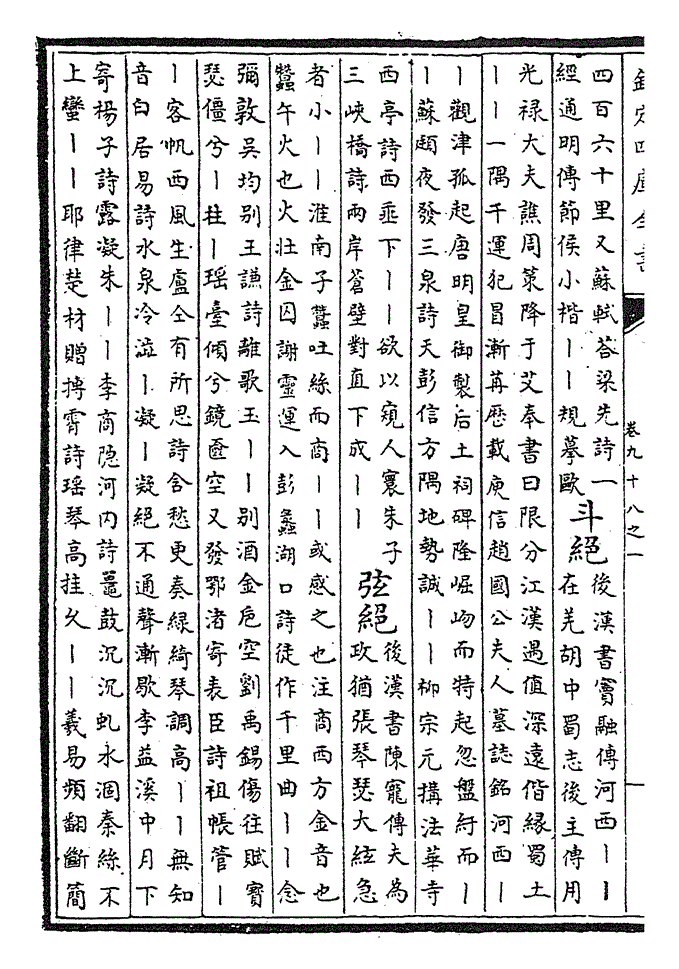 欽定四庫全書
卷九十八之一
四百六十里又蘇軾荅梁先詩一
經通明傳節侯小楷丨丨規摹歐
斗絕
後漢書竇融傳河西丨丨
在羌胡中蜀志後主傳用
光祿大夫譙周策降于艾奉書曰限分江漢遇值深遠偕緣蜀土
丨丨一隅千運犯冒漸苒歷載庾信趙國公夫人墓誌銘河西丨
丨觀津孤起唐明皇御製后土祠碑隆崛岉而特起忽盤紆而丨
丨蘇頲夜發三泉詩天彭信方隅地勢誠丨丨柳宗元搆法華寺
西亭詩西垂下丨丨欲以窺人寰朱子
三峽橋詩兩岸蒼壁對直下成丨丨
弦絕
後漢書陳寵傳夫為
政猶張琴瑟大絃急
者小丨丨淮南子蠶吐絲而商丨丨或感之也注商西方金音也
蠶午火也火壯金囚謝靈運入彭蠡湖口詩徒作千里曲丨丨念
彌敦吳均别王謙詩離歌玉丨丨别酒金巵空劉禹錫傷往賦寳
瑟僵兮丨柱丨瑶臺傾兮鏡匳空又發鄂渚寄表臣詩祖帳管丨
丨客帆西風生盧仝有所思詩含愁更奏綠綺琴調高丨丨無知
音白居易詩水泉冷澁丨凝丨凝絕不通聲漸歇李益溪中月下
寄楊子詩露凝朱丨丨李商隐河内詩鼉鼓沉沉虬水涸秦絲不
上蠻丨丨耶律楚材贈摶霄詩瑶琴高挂久丨丨羲易頻翻斷簡